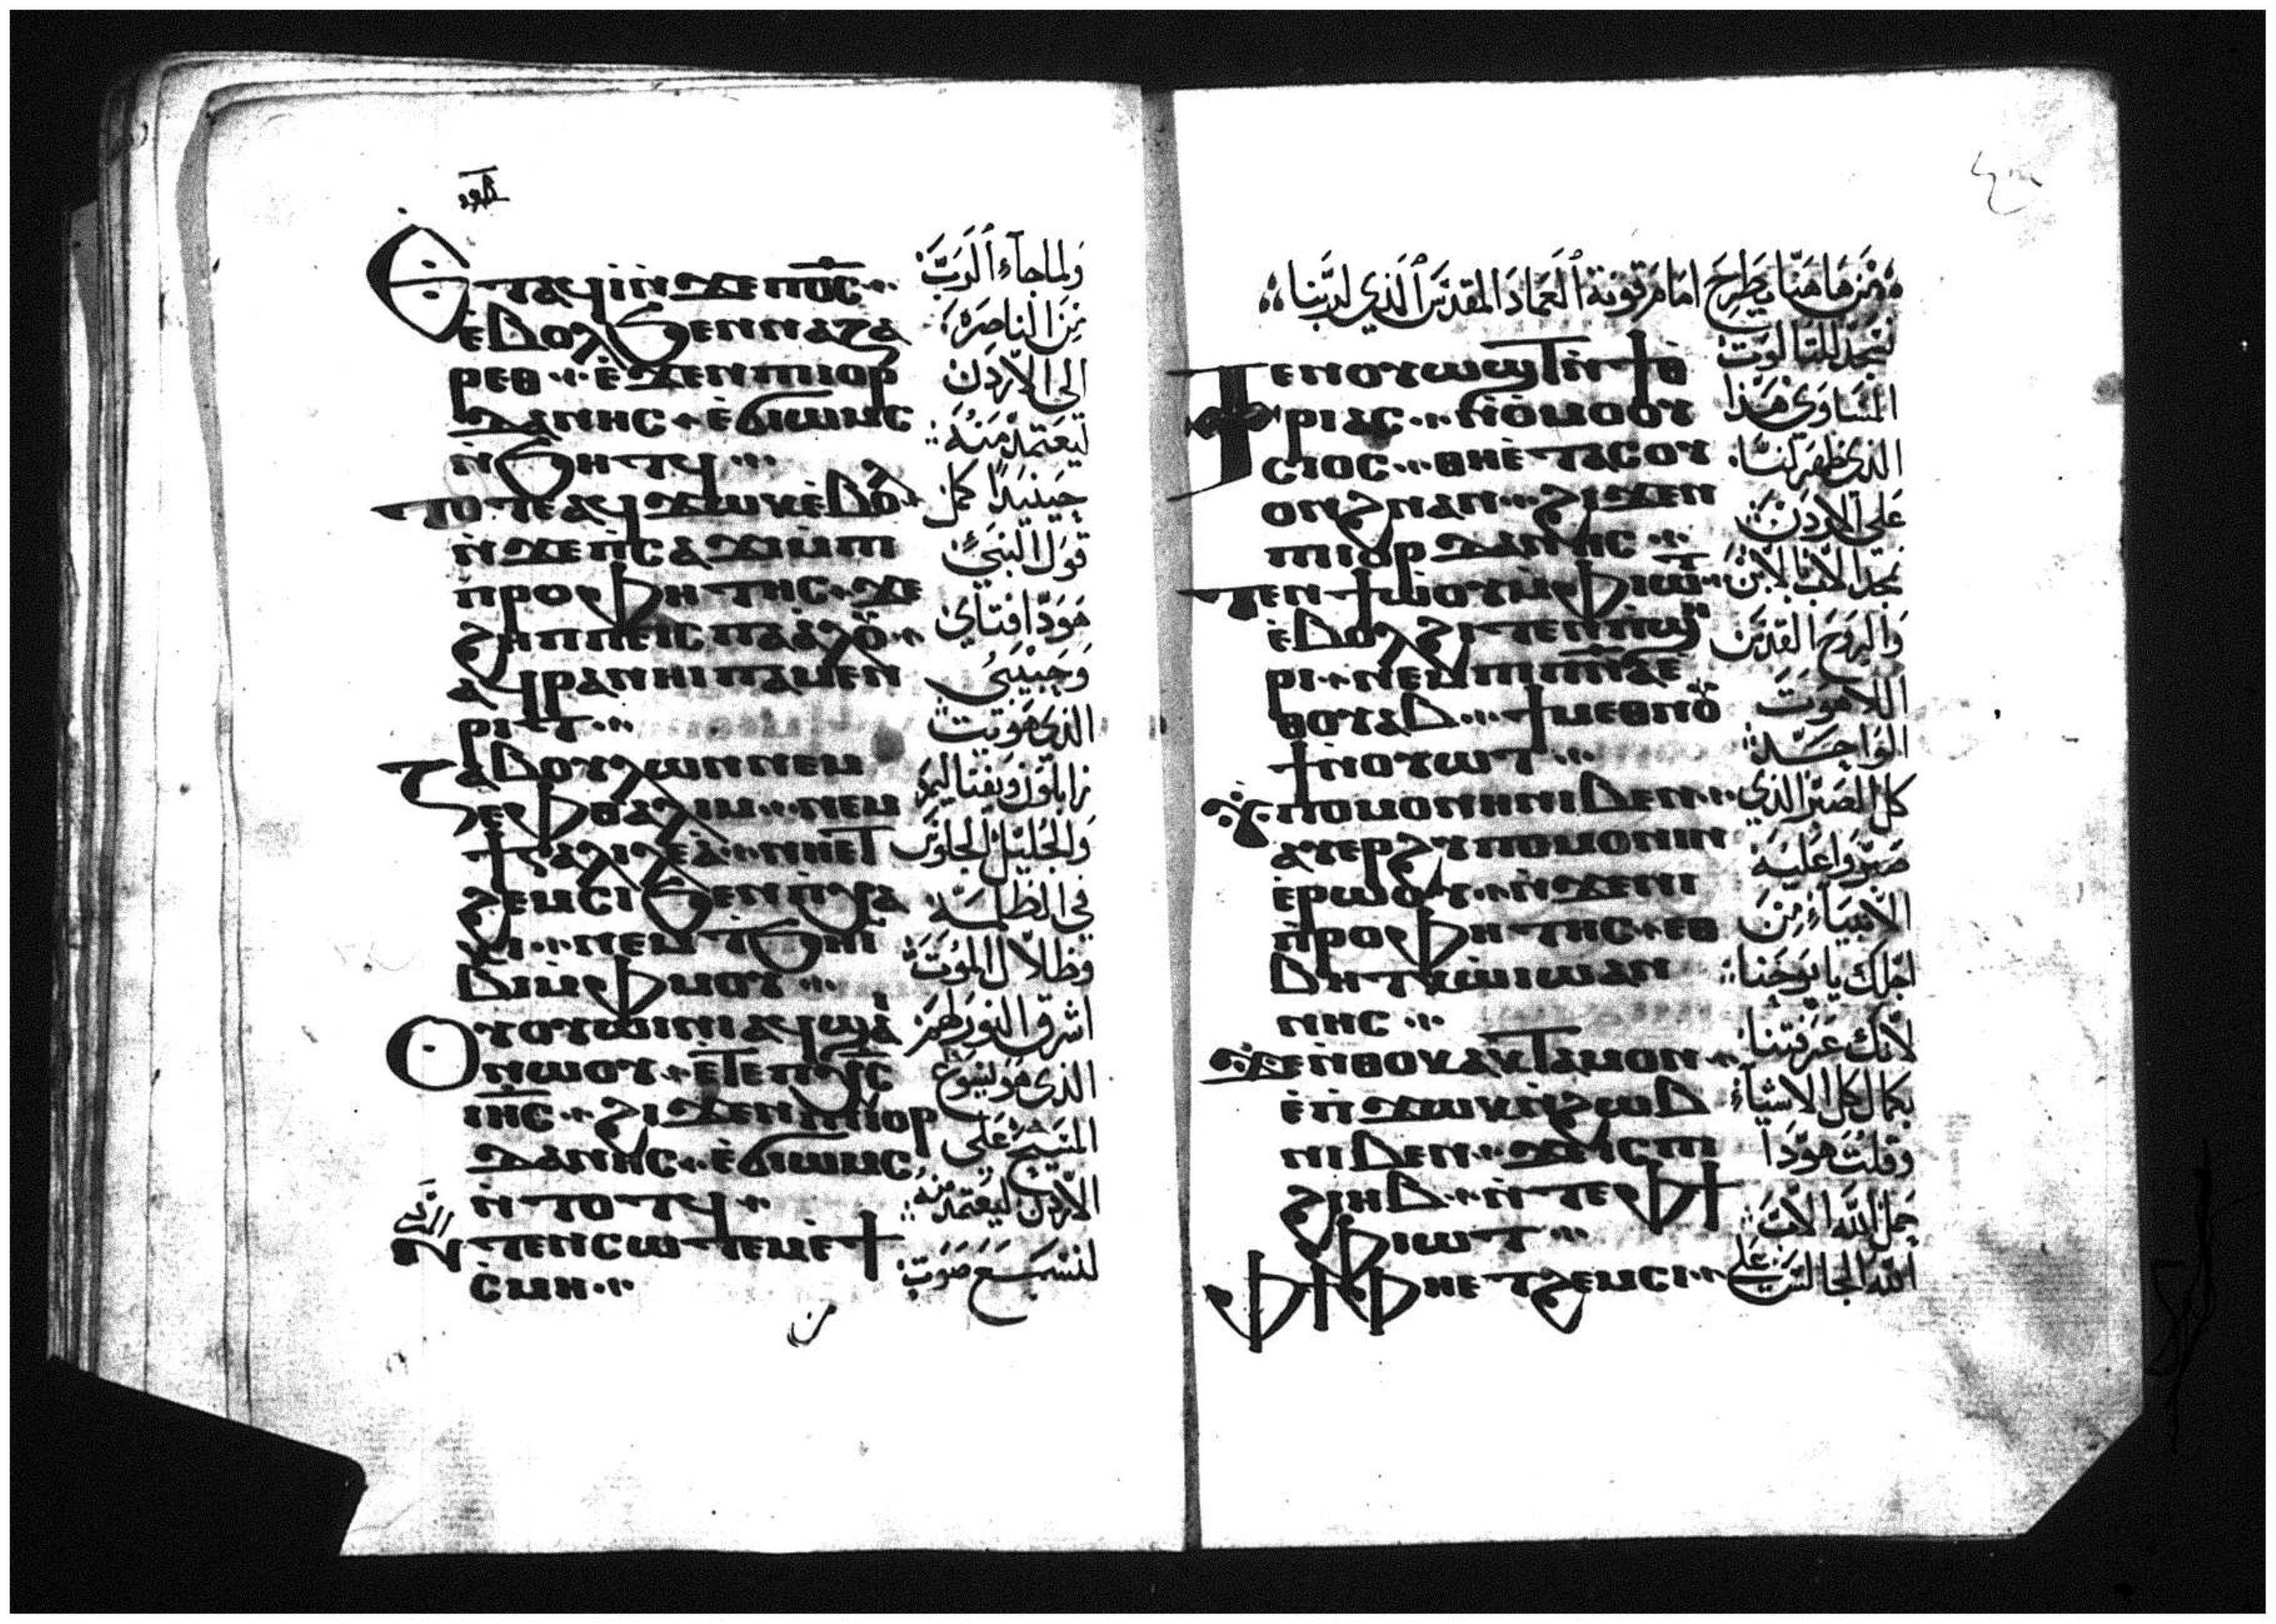 Ⲉⲧⲁϥⲓ̀ⲛ̀ϫⲉⲡⲟ̅ⲥ̅
ⲉ̀ⲃⲟⲗϧⲉⲛⲛⲁⲍⲁ
ⲣⲉⲑ ⲉ̀ϫⲉⲛⲡⲓⲓⲟⲣ
ⲇⲁⲛⲏⲥ ⲉ̀ϭⲓⲱⲙⲥ
ⲛ̀ϧⲏⲧϥ
ⲧⲟⲧⲉⲁϥϫⲱⲕⲉ̀ⲃⲟⲗ
ⲛ̀ϫⲉⲡ̀ⲥⲁϫⲓⲙ̀ⲡⲓ
ⲡ̀ⲣⲟⲫⲏⲧⲏⲥ ϫⲉ
ϩⲏⲡⲡⲉⲓⲥⲡⲁⲁ̀ⲗⲟⲩ
ⲁϥⲣⲁⲛⲏⲓⲡⲁⲙⲉⲛ
ⲣⲓⲧ
ⲍⲁⲃⲟⲩⲗⲱⲛⲛⲉⲙ
ⲛⲉⲫⲑⲁⲗⲓⲙ ⲛⲉⲙ
ϯⲅⲁⲗⲓⲗⲉⲁ̀ ⲛⲏⲉⲧ
ϩⲉⲙⲥⲓϧⲉⲛⲡ̀ⲭⲁ
ⲕⲓ ⲛⲉⲙⲧ̀ϧⲏⲓ
ⲃⲓⲙ̀ⲫⲙⲟⲩ
Ⲟⲩⲟⲩⲱⲓⲛⲓⲁϥϣⲁⲓ
ⲛⲱⲟⲩ ⲉ̀ⲧⲉⲡⲭ̅ⲥ̅
ⲓⲏ̅ⲥ̅ ϩⲓϫⲉⲛⲡⲓⲓⲟⲣ
ⲇⲁⲛⲏⲥ ⲉ̀ϭⲓⲱⲙⲥ
ⲛ̀ⲧⲟⲧϥ
ⲛ̀ⲧⲉⲛⲥⲱⲧⲉⲙⲉ̀ϯ
ⲥ̀ⲙⲏ
ولما جآء الرب
من الناصرة
الى الاردن
ليعتمد منه
حينيدا كمل
قول النبي
هودا فتاي
وحبيبي
الذي هويت
زابلون ونفتاليم
والجليل الجلوس
في الظلمه
وظلال الموت
اشرق النور لهم
الذي هو يسوع
المسيح على
الاردن ليعتمد منه
لنسمع صوت
من هاهنا يطرح امام توبة العماد المقدس الذي لربنا
Ⲧⲉⲛⲟⲩⲱϣⲧⲛ̀ϯⲑ
ⲣⲓⲁⲥ ⲛ̀ⲟ̀ⲙⲟⲟⲩ
ⲥⲓⲟⲥ ⲑⲏⲉ̀ⲧⲁⲥⲟⲩ
ⲟⲛϩⲛⲁⲛ ϩⲓϫⲉⲛ
ⲡⲓⲓⲟⲣⲇⲁⲛⲏⲥ
ⲧⲉⲛϯⲱ̀ⲟⲩⲙ̀ⲫⲓⲱⲧ
ⲉ̀ⲃⲟⲗϩⲓⲧⲉⲛⲡ̀ϣⲏ
ⲣⲓ ⲛⲉⲙⲡⲓⲡ̅ⲛ̅ⲁ̅ⲉ
ⲑⲟⲩⲁⲃ ϯⲙⲉⲑⲛⲟⲩ
ϯⲛ̀ⲟⲩⲱⲧ
ϩⲩⲡⲟⲙⲟⲛⲏⲛⲓⲃⲉⲛ
ⲁⲩⲉⲣϩⲩⲡⲟⲙⲟⲛⲓⲛ
ⲉ̀ⲣⲱⲟⲩ ⲛ̀ϫⲉⲛⲓ
ⲡ̀ⲣⲟⲫⲏⲧⲏⲥ ⲉⲑ
ⲃⲏⲧⲕⲱ̀ⲓⲱⲁⲛ
ⲛⲏⲥ
ϫⲉⲛ̀ⲑⲟⲕⲁⲕⲧⲁⲙⲟⲛ
ⲉ̀ⲡ̀ϫⲱⲕⲛ̀ϩⲱⲃ
ⲛⲓⲃⲉⲛ ϫⲉⲓⲥⲡⲓ
ϩⲓⲏⲃ ⲛ̀ⲧⲉⲫϯ
ⲫⲓⲱⲧ
Ⲫϯⲫⲏⲉⲧϩⲉⲙⲥⲓ
نسجد للتالوت
المساوي هذا
الذي ظهر لنا
على الاردن
نمجد الاب بالابن
والروح القدس
اللاهوت
الواحد
كل الصبر الذي
صبروا عليه
الانبياء من
اجلك يا يوحنا
لانك عرفتنا
بكمال كل الاشياء
وقلت هودا
حمل الله الاب
الله الجالس على